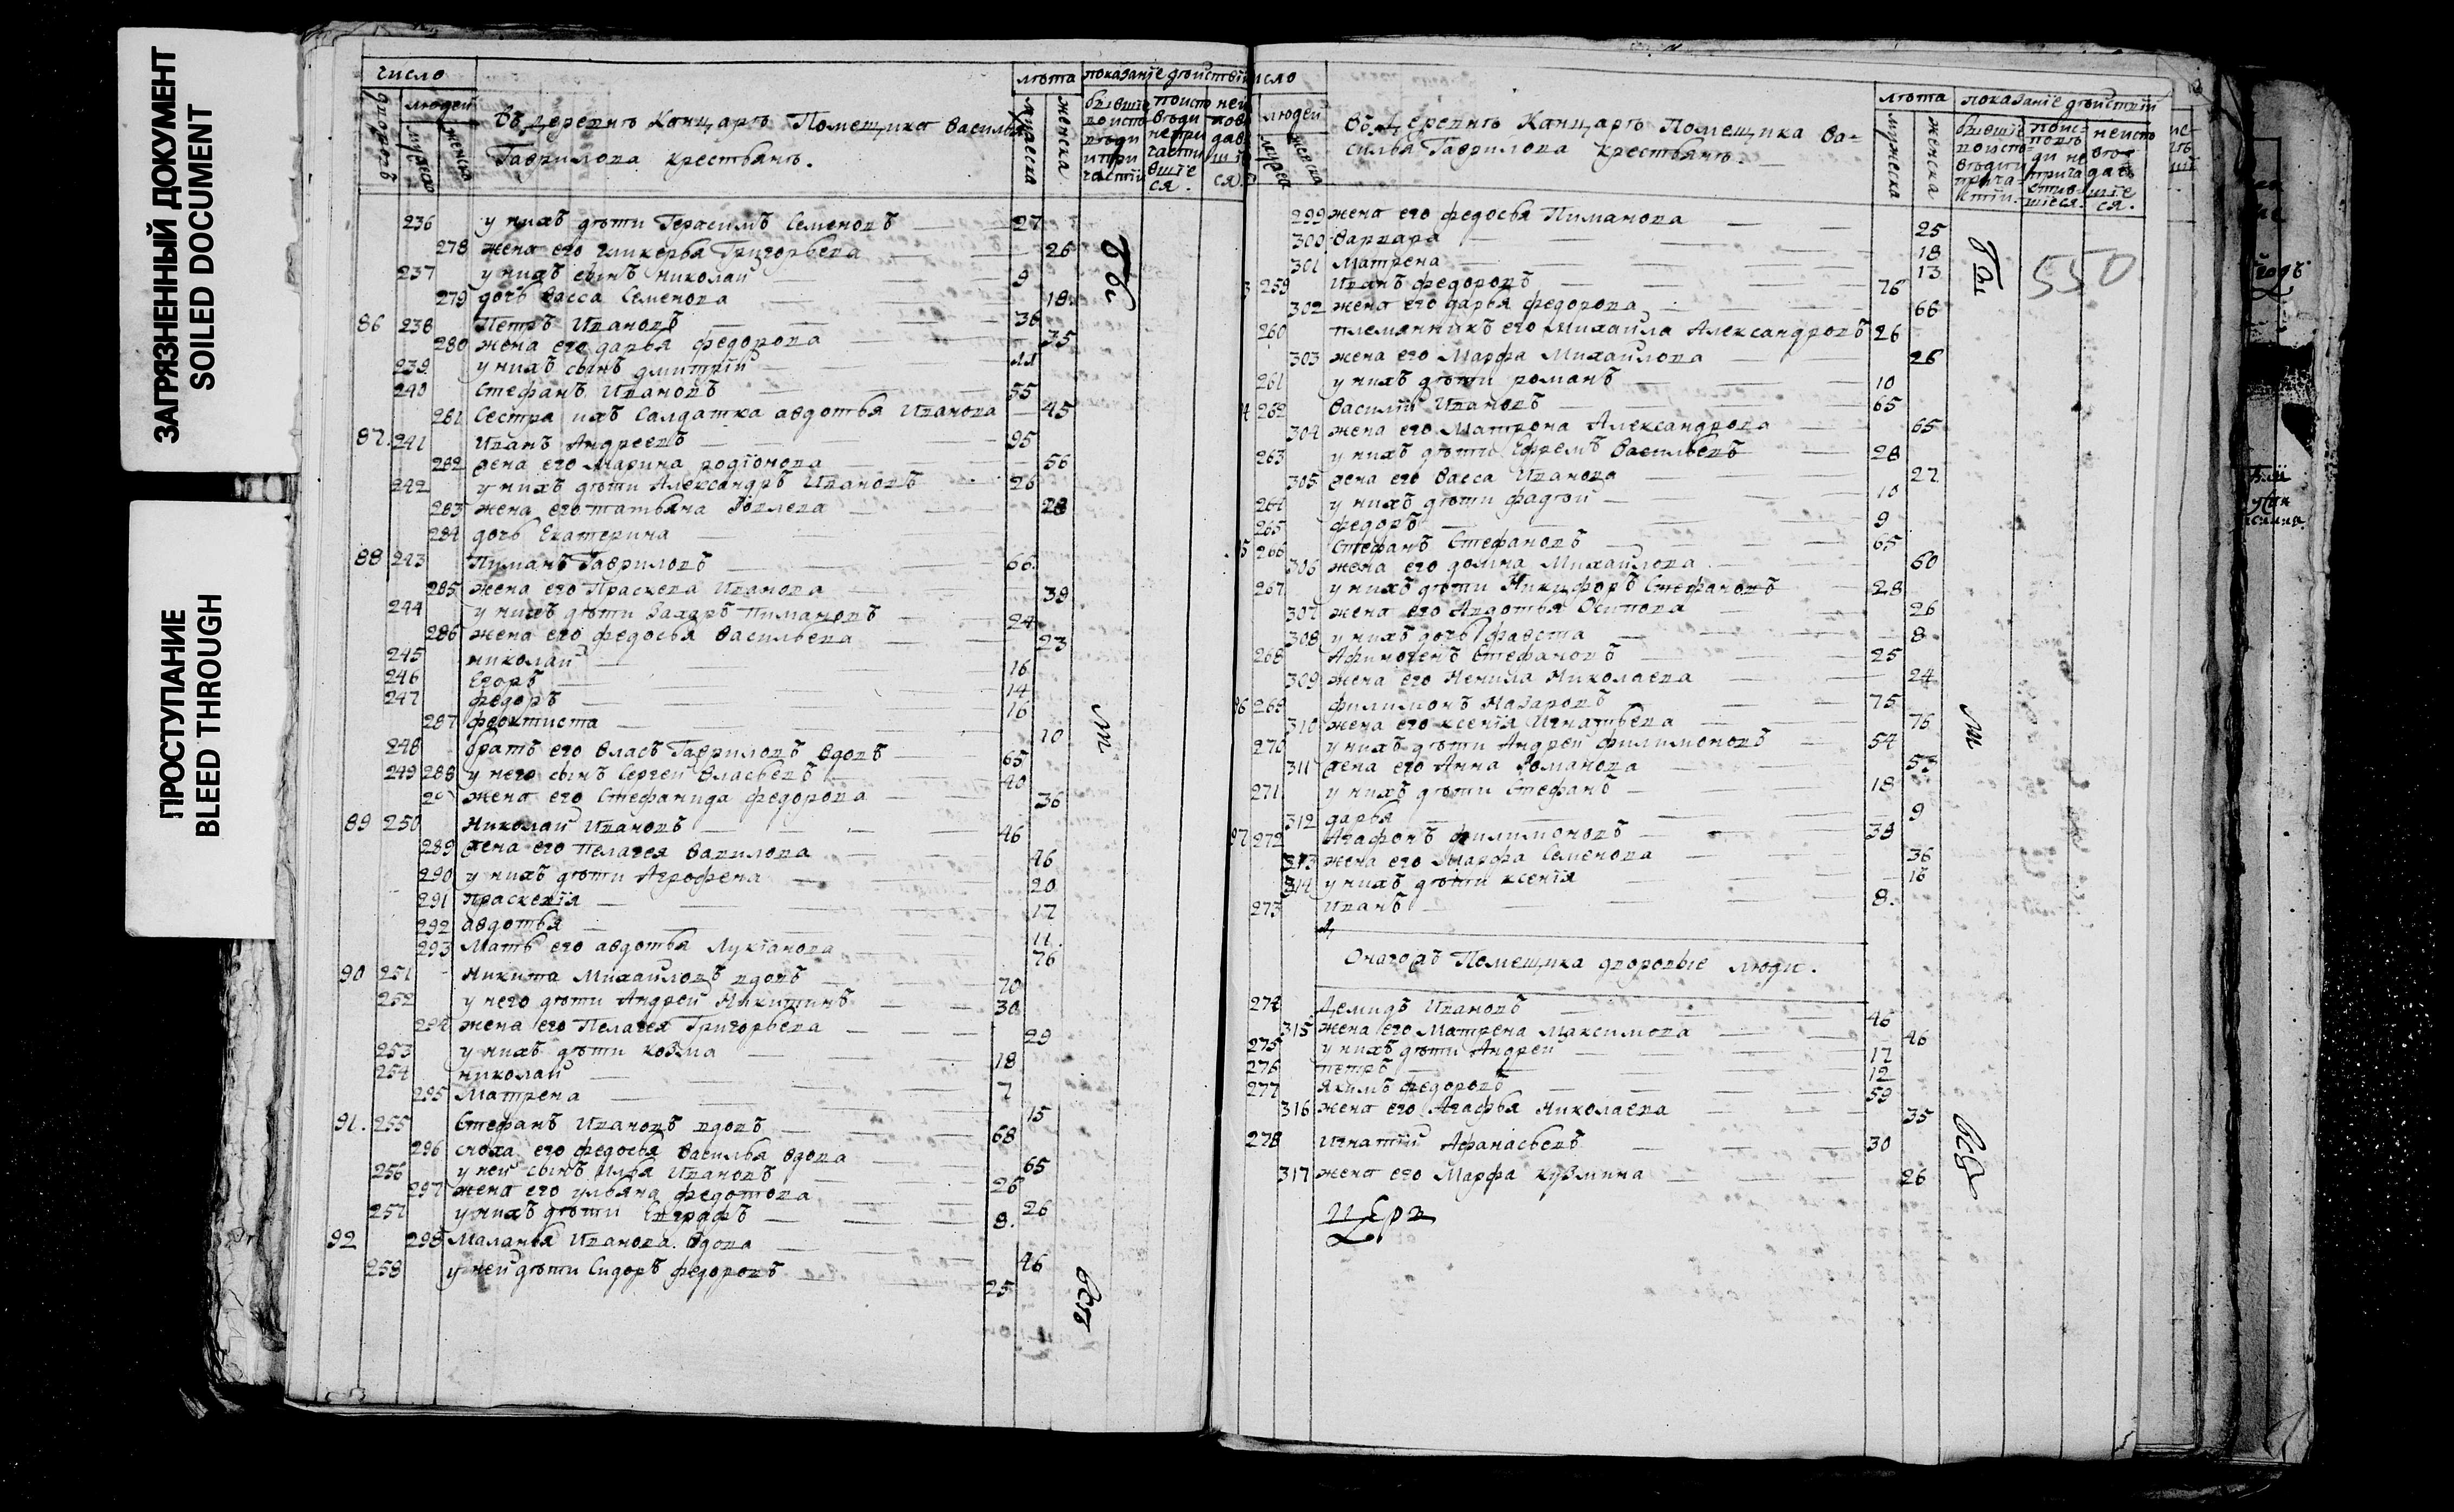 ЗАГРЯЗНЕННЫЙ ДОКУМЕНТ
SOILED DOCUMENT
ПРОСТУПАНИЕ
BLEED THROUGH
число
дворовъ
людей
мужеска
женска
въ деревнѣ Канцарѣ Помещика Василья
Гаврилова крестьянъ.
лѣта
мужеска
женска
показанїе дѣйствїй
236 у нихъ дѣти Герасимъ Семеновъ 27
278 жена его гликерья Григорьева 26
237 у нихъ сынъ николай 9
279 дочь Васса Семенова 18
86 238 Петръ Ивановъ 36
280 жена его дарья федорова 35
239 у нихъ сынъ дмитрїй 11
240 Стефанъ Ивановъ 55
281 Сестра ихъ Салдатка авдотья Иванова 45
87. 241 Иванъ Андреевъ 95
282 жена его Марина родїонова 56
242 у нихъ дѣти Александръ Ивановъ 26
283 жена его татьяна 28
284 дочь Екатерина
88 243 Пиманъ Гавриловъ 66
285 жена его Праскева Иванова 39
244 у нихъ дѣти Захаръ Пимановъ 24
286 жена его федосья Васильева 23
245 николай 16
246 Егоръ 14
247 федоръ 16
287 феоктиста 10
248 братъ его Власъ Гавриловъ вдовъ 65
249 288 у него сынъ Сергей Власьевъ 40
жена его Стефанида федорова 36
89 250 Николай Ивановъ 46
289 жена его Пелагея Вавилова 46
290 у нихъ дѣти Агрофена 20
291 Праскевїя 17
292 авдотья 11
293 Мать его авдотья Лукїанова 76
90 251 Никита Михайловъ вдовъ 70
252 у него дѣти Андрей Никитинъ 30
294 жена его Пелагея Григорьева 29
253 у нихъ дѣти козма 18
254 николай 7
295 Матрена 15
91. 255 Стефанъ Ивановъ вдовъ 68
296 сноха его федосья Василья вдова 65
256 у ней сынъ Илья Ивановъ 26
297 жена его ульяна федотова 26
257 у нихъ дѣти Евграфъ 8.
92 298 Маланья Иванова вдова 46
258 у ней дѣти Сидоръ федоровъ 25
людей
женска
въ деревнѣ Канцарѣ Помещика Ва-
силья Гаврилова крестьянъ.
лѣта
мужеска
женска
показанїе дѣйствїй
550
299 жена его федосья Пиманова 25
300 Варвара 18
301 Матрена 13
259 Иванъ федоровъ 76
302 жена его дарья федорова 66
260 племянникъ его Михайла Александровъ 26
303 жена его Марфа Михайлова 26
261 у нихъ дѣти романъ 10
262 Василїй Ивановъ 65
304 жена его Матрона Александрова 65
263 у нихъ дѣти Ефремъ Васильевъ 28
305 жена его Васса Иванова 27
264 у нихъ дѣти фадѣй 10
265 федоръ 9
266 Стефанъ Стефановъ 65
306 жена его домна Михайлова 60
267 у нихъ дѣти Никифоръ Стефановъ 28
307 жена его Авдотья Осипова 26
308 у нихъ дочь фавста 8
268 Афиногенъ Стефановъ 25
309 жена его Ненила Николаева 24
269 филимонъ Назаровъ 75
310 жена его ксенїя Игнатьева 76
270 у нихъ дѣти Андрей филимоновъ 54
311 жена его Анна Романова 53
271 у нихъ дѣти Стефанъ 18
312 дарья 9
272 Агафонъ филимоновъ 38
313 жена его Марфа Семенова 36
314 у нихъ дѣти ксенїя 16
273 Иванъ 8.
Онагожъ Помещика дворовые люди.
274 Демидъ Ивановъ 46
315 жена его Матрена Максимова 46
275 у нихъ дѣти Андрей 17
276 петръ 12
277 Якимъ федоровъ 59
316 жена его Агафья Николаева 35
278 Игнатїй Афанасьевъ 30
317 жена его Марфа кузмина 26